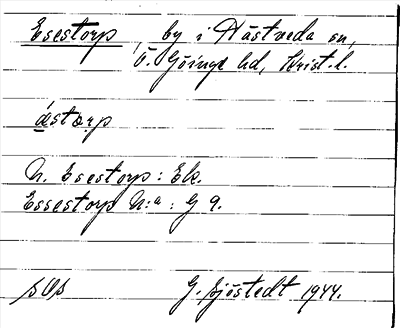 Esestorp, by i Hästveda sn,
Ö. Göinge hd, Krist. l.
ástorp
N. Esestorp: Ek.
Essestorp N:a: G 9.
SOS G. Sjöstedt 1944.